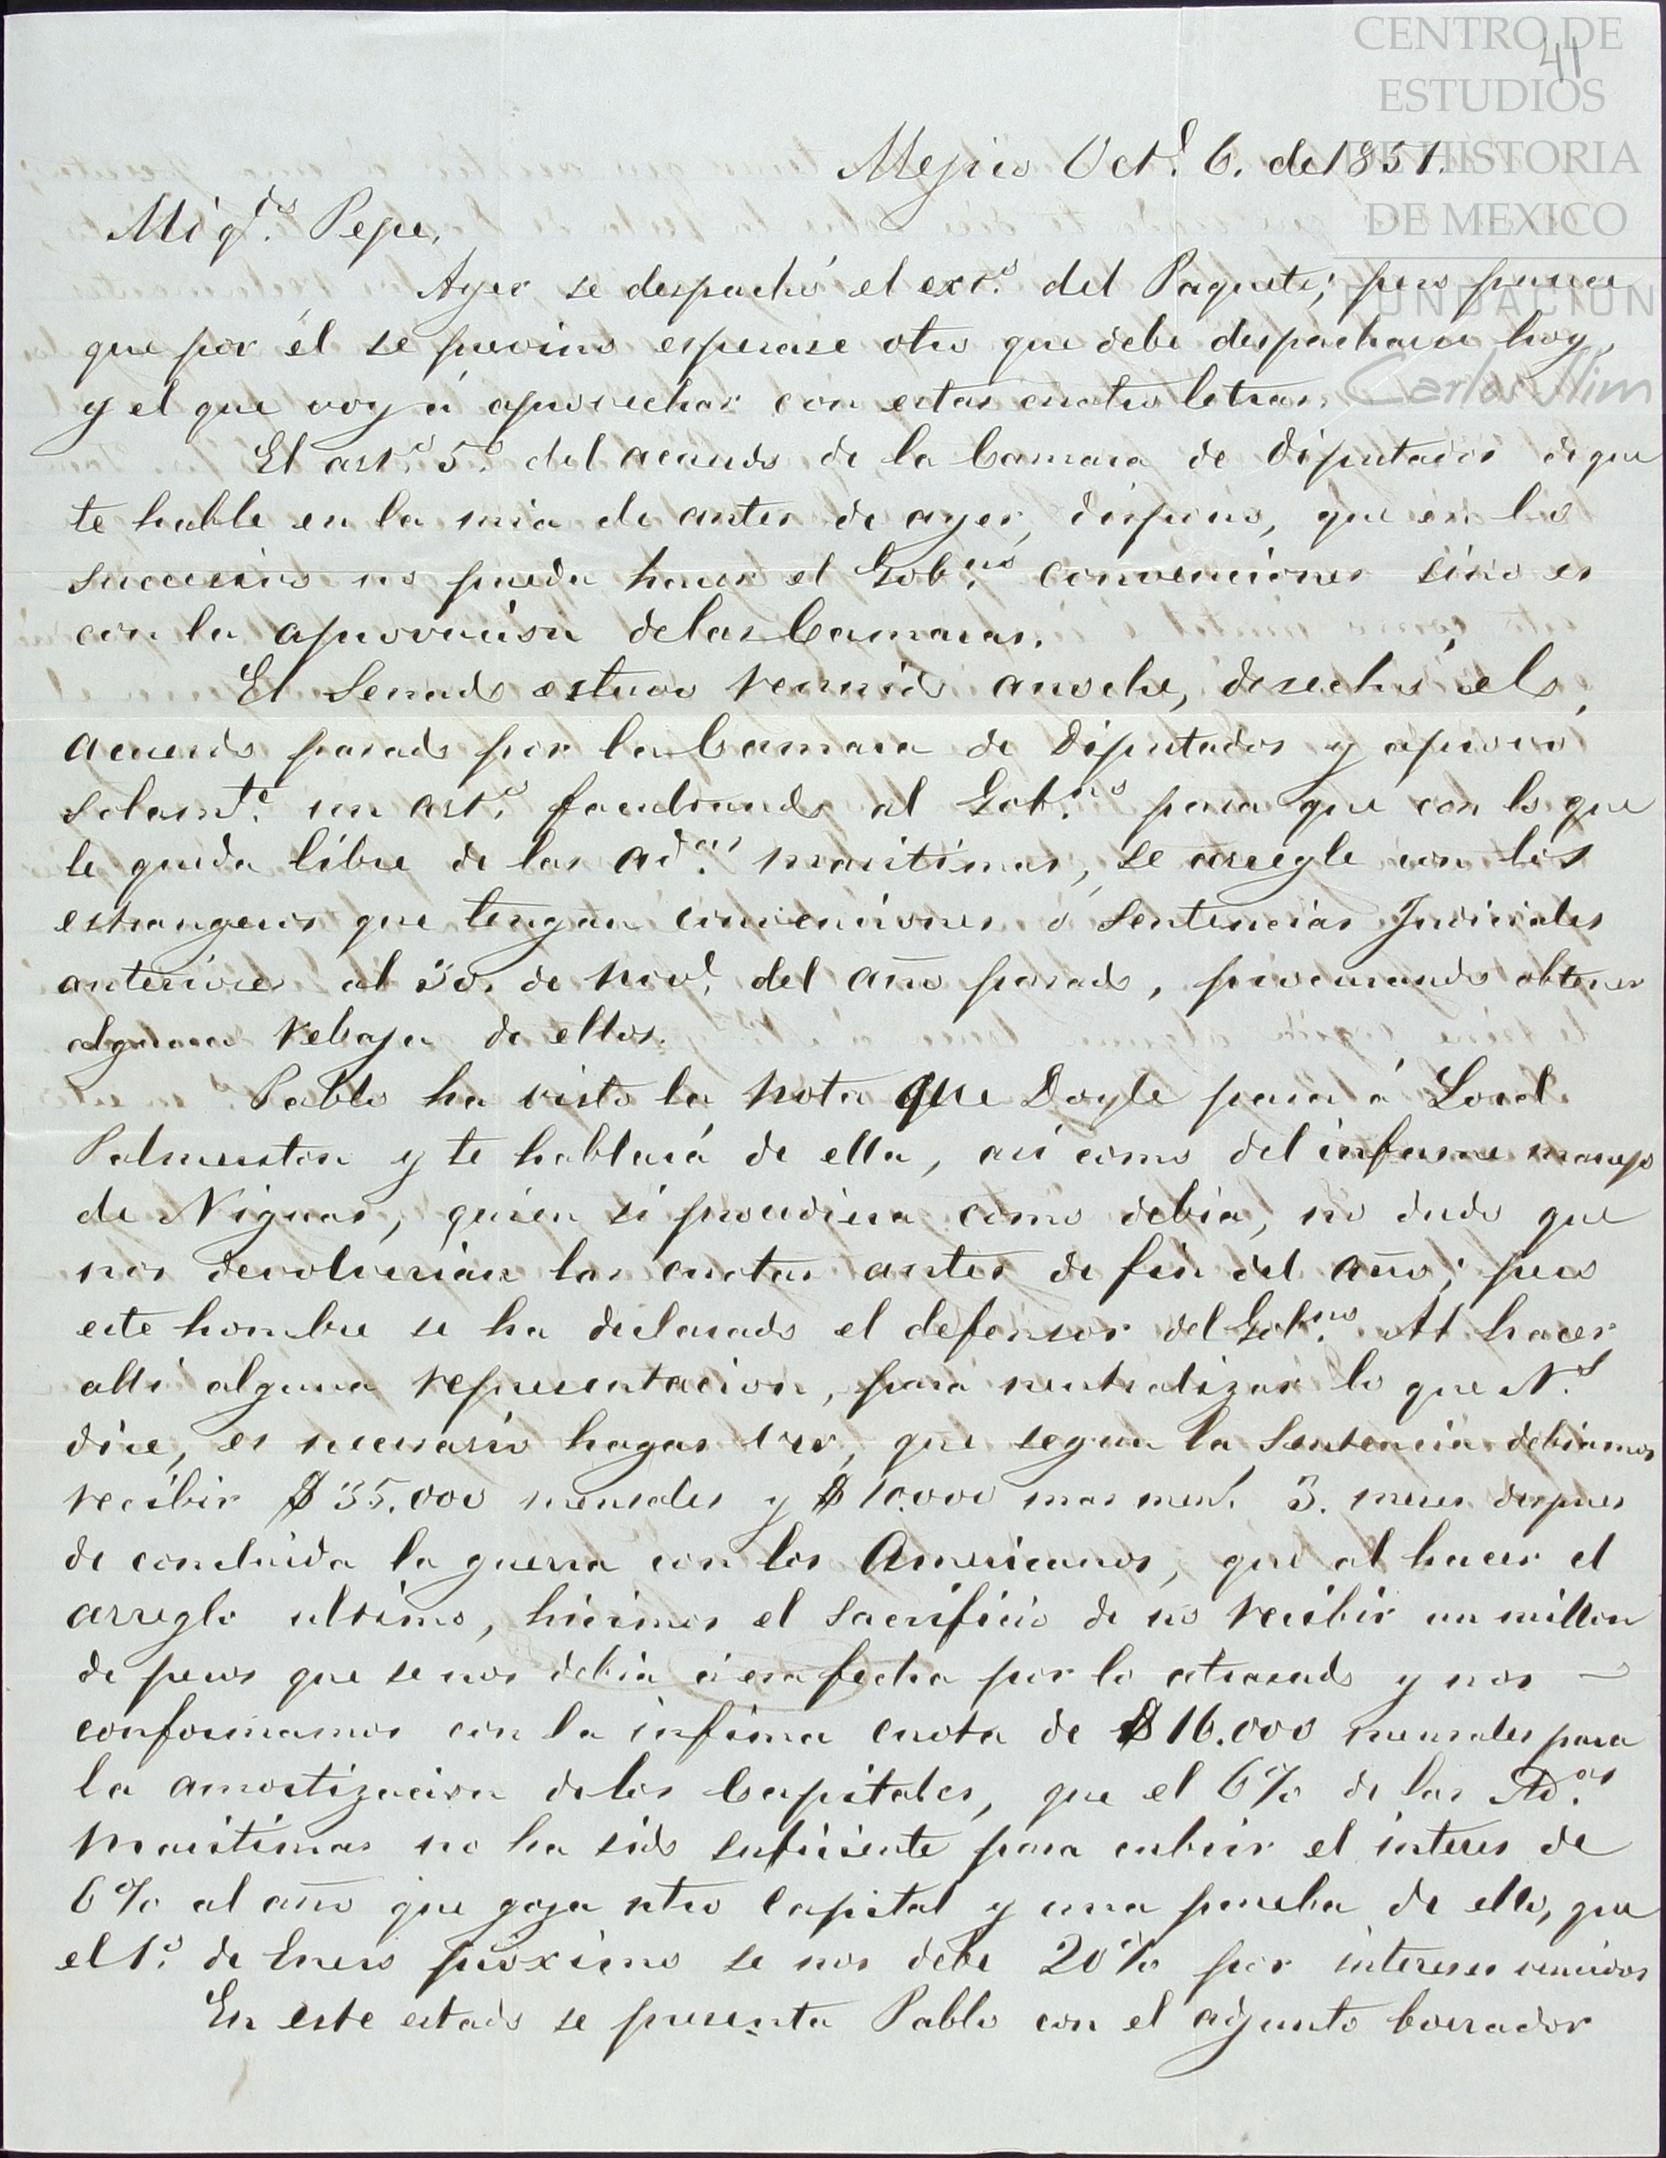 CENTRO DE
ESTUDIOS
DE HISTORIA
DE MEXICO
FUNDACION
Carlos Slim
41
Mejico Oct.e 6. de 1851.
Mi q.do Pepe,
Ayer se despachó el ext.o del Paquete; pero parece
que por él se previno esperase otro que debe despacharse hoy,
y el que voy á aprovechar con estas cuatro letras.
El art.o 5.o del acuerdo de la Camara de Diputados de que
te hablé en la mia de antes de ayer, dispone, que en lo
succesivo no pueda hacer el Gob.no convenciones sino es
con la aprovación de las Camaras.
El Senado estuvo reunido anoche, desechó el
acuerdo pasado por la Camara de Diputados y aprovó
solam.te un art.o facultando al Gob.no para que con lo que
le queda libre de las ad.as maritimas, se arregle con los
estrangeros que tengan convenciones ó Sentencias Judiciales
anteriores al 30. de Nov.e del año pasado, procurando obtener
alguna rebaja de ellos.
Pablo ha visto la nota que Doyle pasa á Lord
Palmerston y te hablará de ella, asi como del infame manejo
de Niguas, quien si procediera como debia, no dudo que
nos devolverian las cuotas antes de fin del año; pero
este hombre se ha declarado el defensor del Gob.no Al hacer
alli alguna representacion, para neutralizar lo que N.s
dice, es necesario hagas ver, que segun la Sentencia debiamos
recibir $35.000 mensales y $10.000 mas men.s 3. meses despues
de concluida la guerra con los Americanos, que al hacer el
arreglo ultimo, hicimos el sacrificio de no recibir un millon
de pesos que se nos debia á esa fecha por lo atrasado y nos
conformamos con la infima cuota de $16.000 mensales para
la amortizacion de los Capitales, que el 6% de las Ad.as
Maritimas no ha sido suficiente para cubrir el interes de
6% al año que goza ntro Capital y una prueba de ello, que
el 1.o de Enero próximo se nos debe 20% por intereses vencidos
En este estado se presenta Pablo con el adjunto borrador